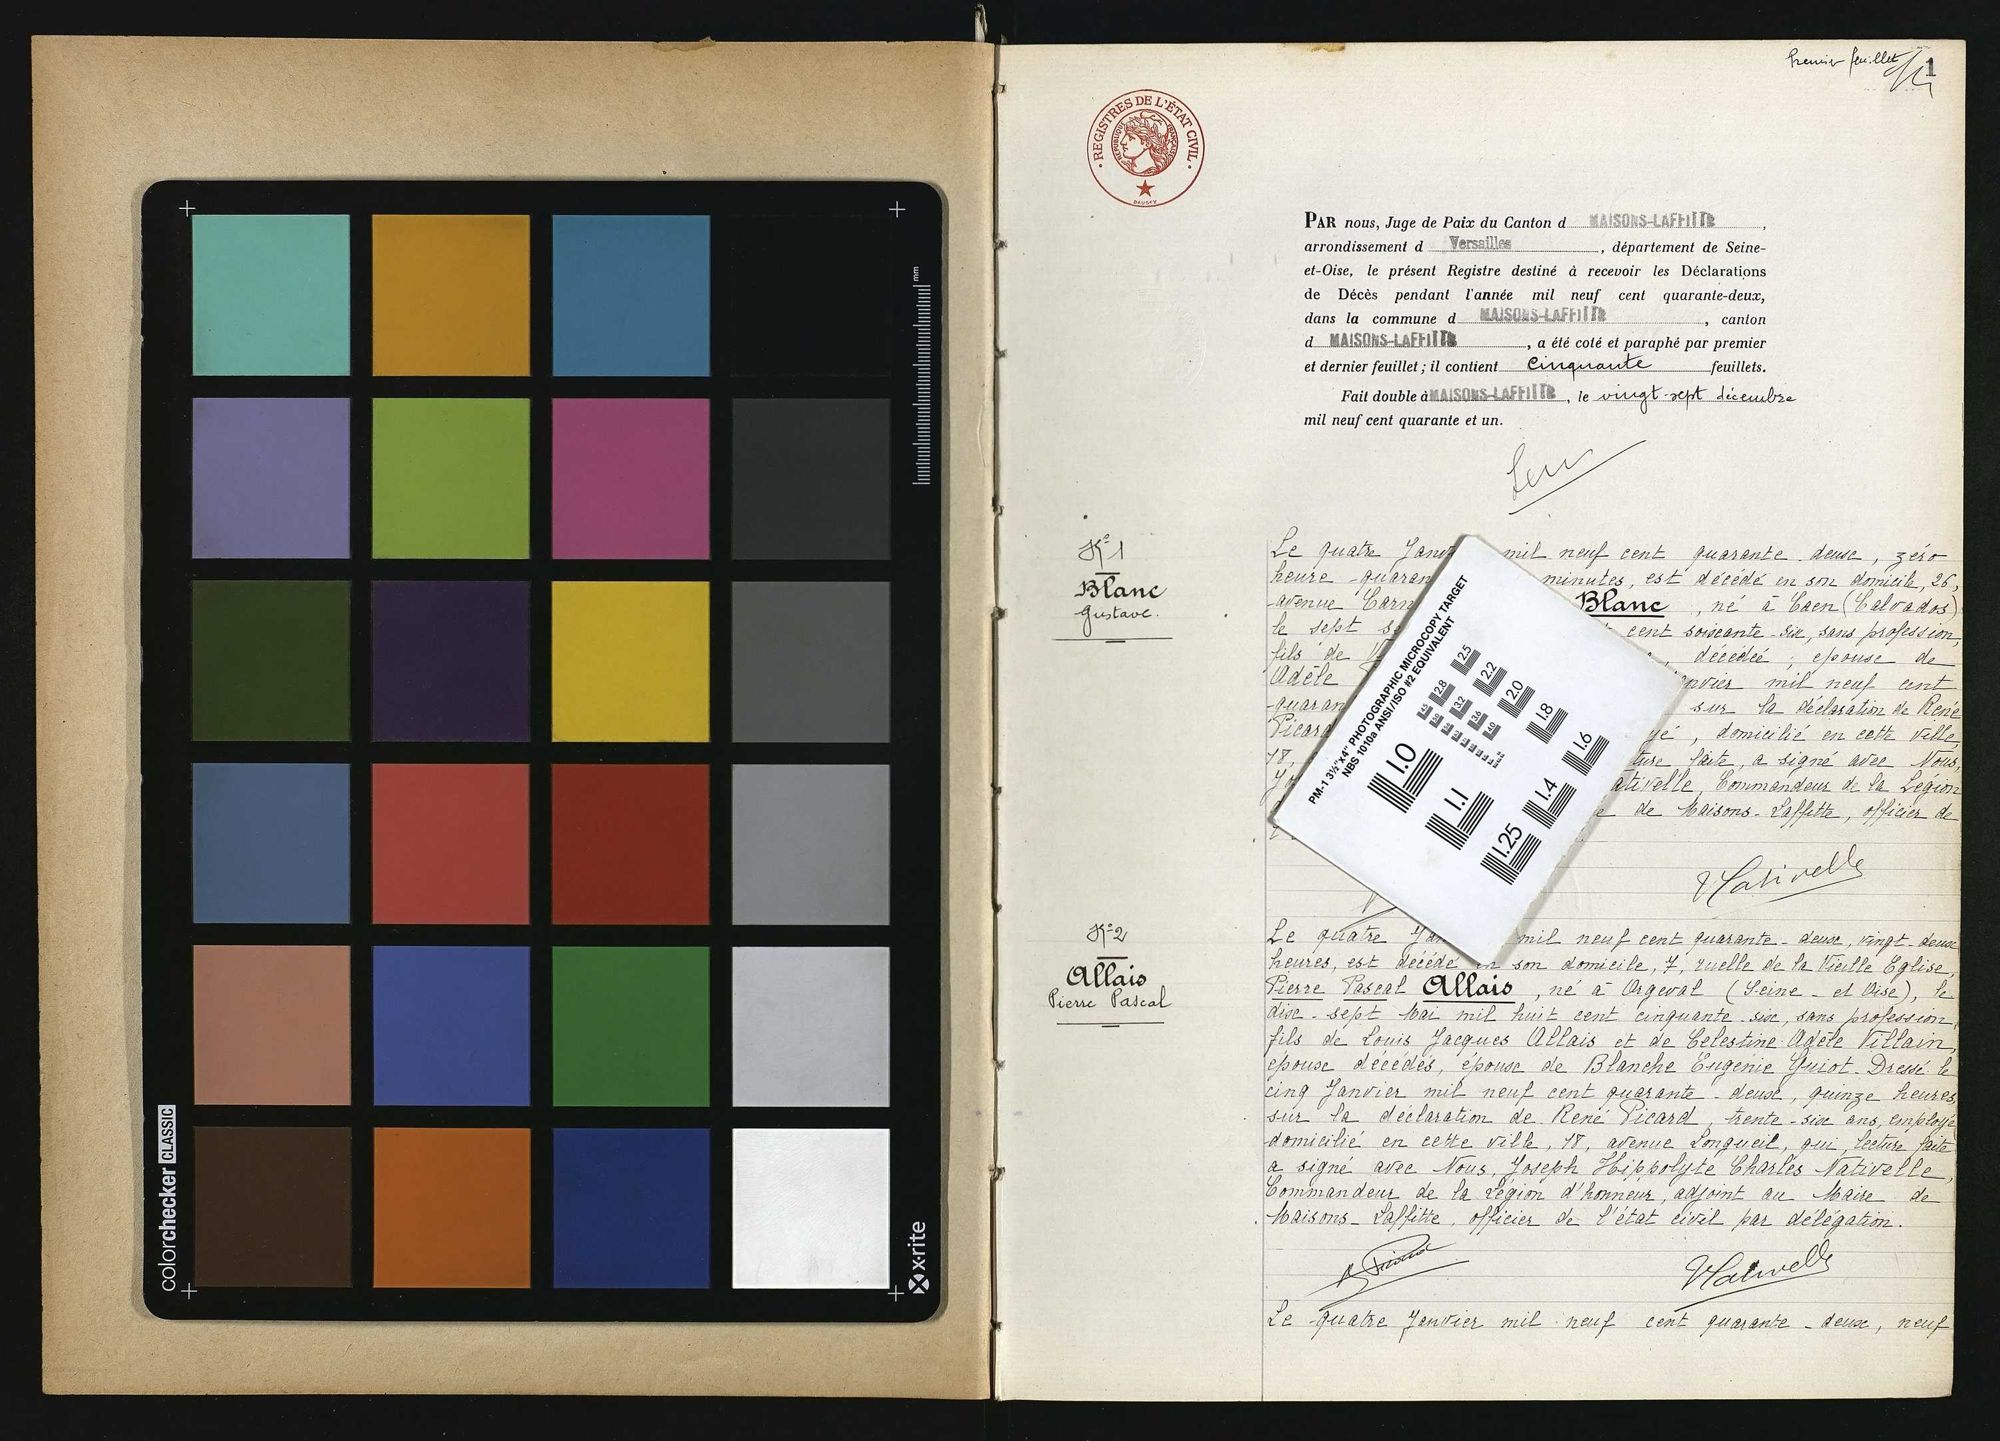 Premier feuillet
1
REGISTRES DE L'ÉTAT CIVIL
RÉPUBLIQUE FRANÇAISE
DAUSSY
PAR nous, Juge de Paix du Canton d MAISONS-LAFFITTE,
arrondissement d Versailles, département de Seine-
et-Oise, le présent Registre destiné à recevoir les Déclarations
de Décès pendant l'année mil neuf cent quarante-deux,
dans la commune d MAISONS-LAFFITTE, canton
d MAISONS-LAFFITTE, a été coté et paraphé par premier
et dernier feuillet ; il contient cinquante feuillets.
Fait double à MAISONS-LAFFITTE, le vingt-sept décembre
mil neuf cent quarante et un.
N° 1
Blanc
Gustave.
Le quatre Janv mil neuf cent quarante-deux, zéro
heure quaran minutes, est décédé en son domicile, 26,
avenue Carn Blanc, né à Caen (Calvados)
le sept s cent soixante-six, sans profession,
fils de décédée ; époux de
Adèle nvier mil neuf cent
quaran sur la déclaration de René
Picard é, domicilié en cette ville,
18, ture faite, a signé avec Nous,
ativelle, Commandeur de la Légion
e de Maisons-Laffitte, officier de
Nativelle
PM-1 3½"x4" PHOTOGRAPHIC MICROCOPY TARGET
NBS 1010a ANSI/ISO #2 EQUIVALENT
1.0
1.1
1.25
1.4
1.6
1.8
2.0
2.2
2.5
2.8
3.2
3.6
4.0
4.5
N° 2
Allais
Pierre Pascal
Le quatre Jan mil neuf cent quarante-deux, vingt-deux
heures, est décédé en son domicile, 7, ruelle de la Vieille Eglise,
Pierre Pascal Allais, né à Orgeval (Seine-et Oise), le
dix-sept Mai mil huit cent cinquante-six, sans profession,
fils de Louis Jacques Allais et de Celestine Adèle Villain,
époux décédés, époux de Blanche Eugénie Guiot. Dressé le
cinq Janvier mil neuf cent quarante-deux, quinze heures
sur la déclaration de René Picard, trente-six ans, employé
domicilié en cette ville, 18, avenue Longueil, qui, lecture faite
a signé avec Nous, Joseph Hippolyte Charles Nativelle,
Commandeur de la Légion d'honneur, adjoint au Maire de
Maisons-Laffitte, officier de l'état civil par délégation.
R Picard
Nativelle
Le quatre Janvier mil neuf cent quarante-deux, neuf
mm
colorchecker CLASSIC
x-rite